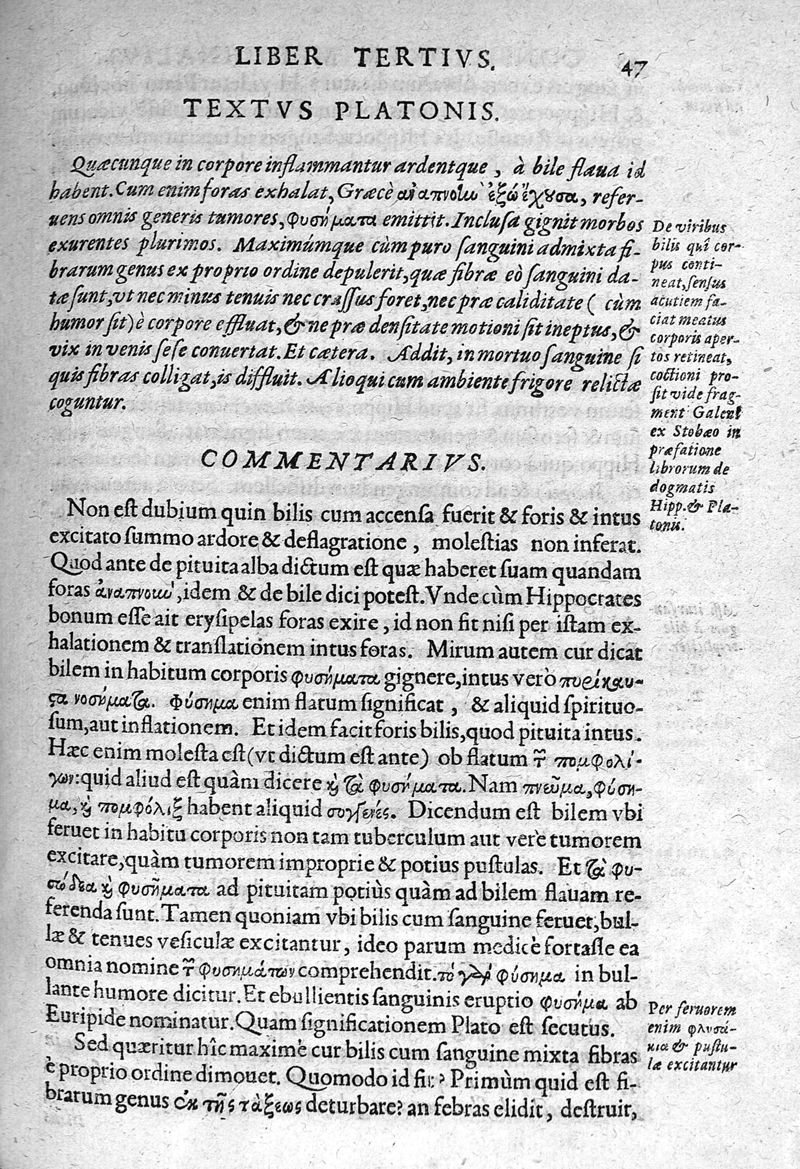 LIBER TERTIVS.
47
TEXTVS PLATONIS.
Quæcunque in corpore inflammantur ardentque, à bile flaua id
habent. Cum enim foras exhalat, Græcè ἀναπνοὼ ἔξω ἔχουσα, refer-
uens omnis generis tumores, φυσήματα emittit. Inclusa gignit morbos
exurentes plurimos. Maximúmque cùm puro sanguini admixta fi-
brarum genus ex proprio ordine depulerit, quæ fibræ eò sanguini da-
tæ sunt, vt nec minus tenuis nec crassus foret, nec præ caliditate ( cùm
humor sit) è corpore effluat, & ne præ densitate motioni sit ineptus, &
vix in venis sese conuertat. Et cætera. Addit, in mortuo sanguine si
quis fibras colligat, is diffluit. Alioqui cum ambiente frigore relictæ
coguntur.
De viribus
bilis quî cor-
pus conti-
neat, sensus
acutiem fa-
ciat meatus
corporis aper-
tos retineat,
coctioni pro-
sit vide frag-
ment Galeni
ex Stobæo in
præfatione
librorum de
dogmatis
Hipp. & Pla-
tonis.
COMMENTARIVS.
Non est dubium quin bilis cum accensa fuerit & foris & intus
excitato summo ardore & deflagratione, molestias non inferat.
Quod ante de pituita alba dictum est quæ haberet suam quandam
foras ἀναπνοὼ, idem & de bile dici potest. Vnde cùm Hippocrates
bonum esse ait erysipelas foras exire, id non fit nisi per istam ex-
halationem & translationem intus foras. Mirum autem cur dicat
bilem in habitum corporis φυσήματα gignere, intus verò πυρίκαυ-
ϛα νοσήματα. Φύσημα enim flatum significat, & aliquid spirituo-
sum, aut inflationem. Et idem facit foris bilis, quod pituita intus.
Hæc enim molesta est (vt dictum est ante) ob flatum τ̃ πομφολί-
γων: quid aliud est quàm dicere ϗ τὰ φυσήματα. Nam πνεῦμα, φύση-
μα, ϗ πομφόλιξ habent aliquid συγγενές. Dicendum est bilem vbi
feruet in habitu corporis non tam tuberculum aut verè tumorem
excitare, quàm tumorem improprie & potius pustulas. Et τὰ φυ-
σώδεα ϗ φυσήματα ad pituitam potiùs quàm ad bilem flauam re-
ferenda sunt. Tamen quoniam vbi bilis cum sanguine feruet, bul-
læ & tenues vesiculæ excitantur, ideo parum medicè fortasse ea
omnia nomine τ̃ φυσημάτων comprehendit. τὸ γὰρ φύσημα in bul-
lante humore dicitur. Et ebullientis sanguinis eruptio φύσημα ab
Euripide nominatur. Quam significationem Plato est secutus.
Sed quæritur hîc maximè cur bilis cum sanguine mixta fibras
è proprio ordine dimouet. Quomodo id fit? Primùm quid est fi-
brarum genus ἐκ τῆς τάξεως deturbare? an febras elidit, destruit,
Per feruorem
enim φλυσά-
κια & pustu-
læ excitantur